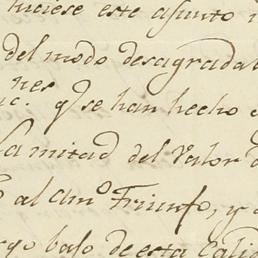 hiciese este asunto
del modo desagrada
nes
q.e se han hecho
la mitad del valor
al am.o Triunfo, y
bajo de esta Calid